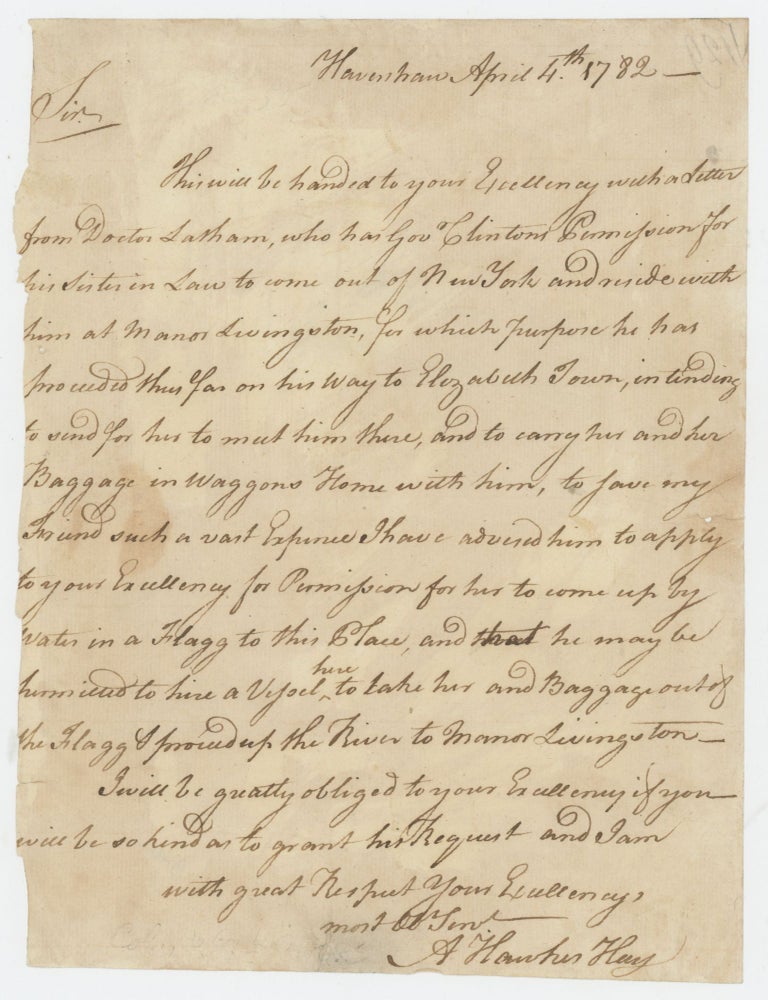 Havershaw April 4.th 1782 —
Sir.
This will be handed to your Excellency with a Letter
from Doctor Latham, who has Gov.r Clintons Permission for
his Sister in Law to come out of New York and reside with
him at Manor Livingston, for which purpose he has
proceeded thus far on his way to Elozabeth Town, intending
to send for her to meet him there, and to carry her and her
Baggage in Waggons Home with him, to save my
Friend such a vast Expence I have advised him to apply
to your Excellency for Permission for her to come up by
Water in a Flagg to this Place, and that he may be
permitted to hire a Vessel here, to take her and Baggage out of
the Flagg & proceed up the River to Manor Livingston —
I will be greatly obliged to your Excellency if you
will be so kind as to grant his Request and I am
with great Respect Your Excellencys
most Ob.t Serv.t
A Hawkes Hay